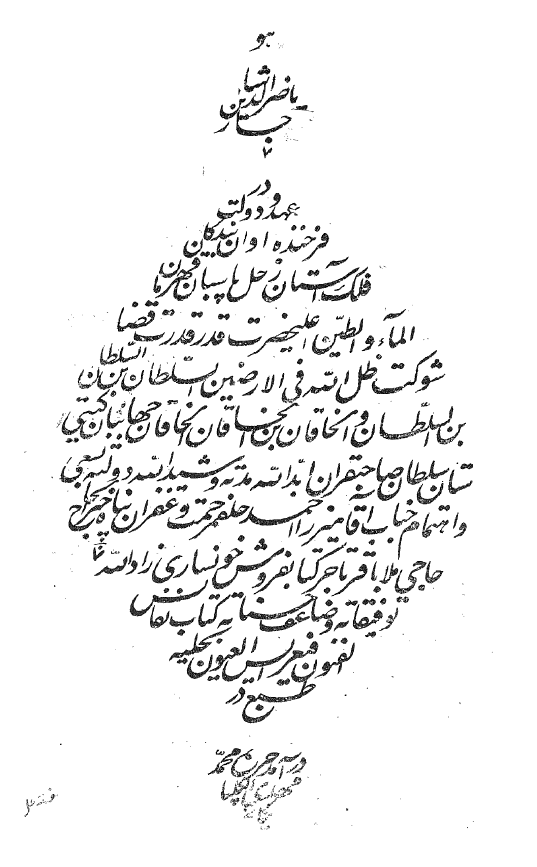 هو
ناصر الدین شاه
قاجار
در
عهد و دولت
فرخنده اوان بندگان
فلک آستان زحل پاسبان قهرمان
الماء والطین اعلیحضرت قدر قدرت قضا
شوکت ظل الله فی الارضین السلطان بن السلطان
بن السلطان والخاقان بن الخاقان بن الخاقان جهانبان گیتی
ستان سلطان صاحبقران ابد الله مدته وشید الله دولته بسعی
واهتمام جناب آقا میرزا احمد خلف رحمت وغفران پناه خیر الحاج
حاجی ملا باقر تاجر کتابفروش خونساری زاد الله
توفیقاته وضاعف حسناته کتاب نفائس
الفنون فی عرایس العیون بحلیه
طبع در
در آمد حرره محمد